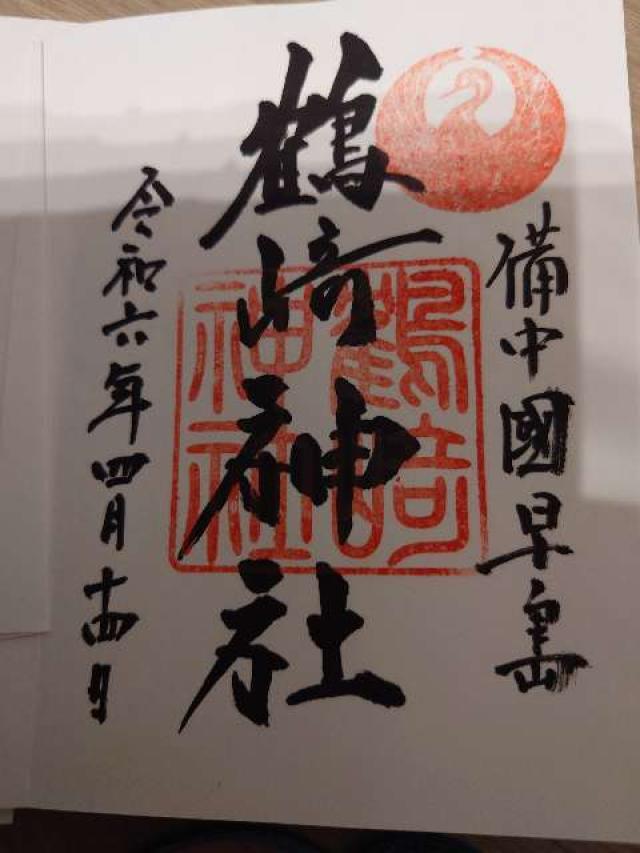 備中國早島
鶴崎神社
鶴崎
神社
令和六年四月十四日